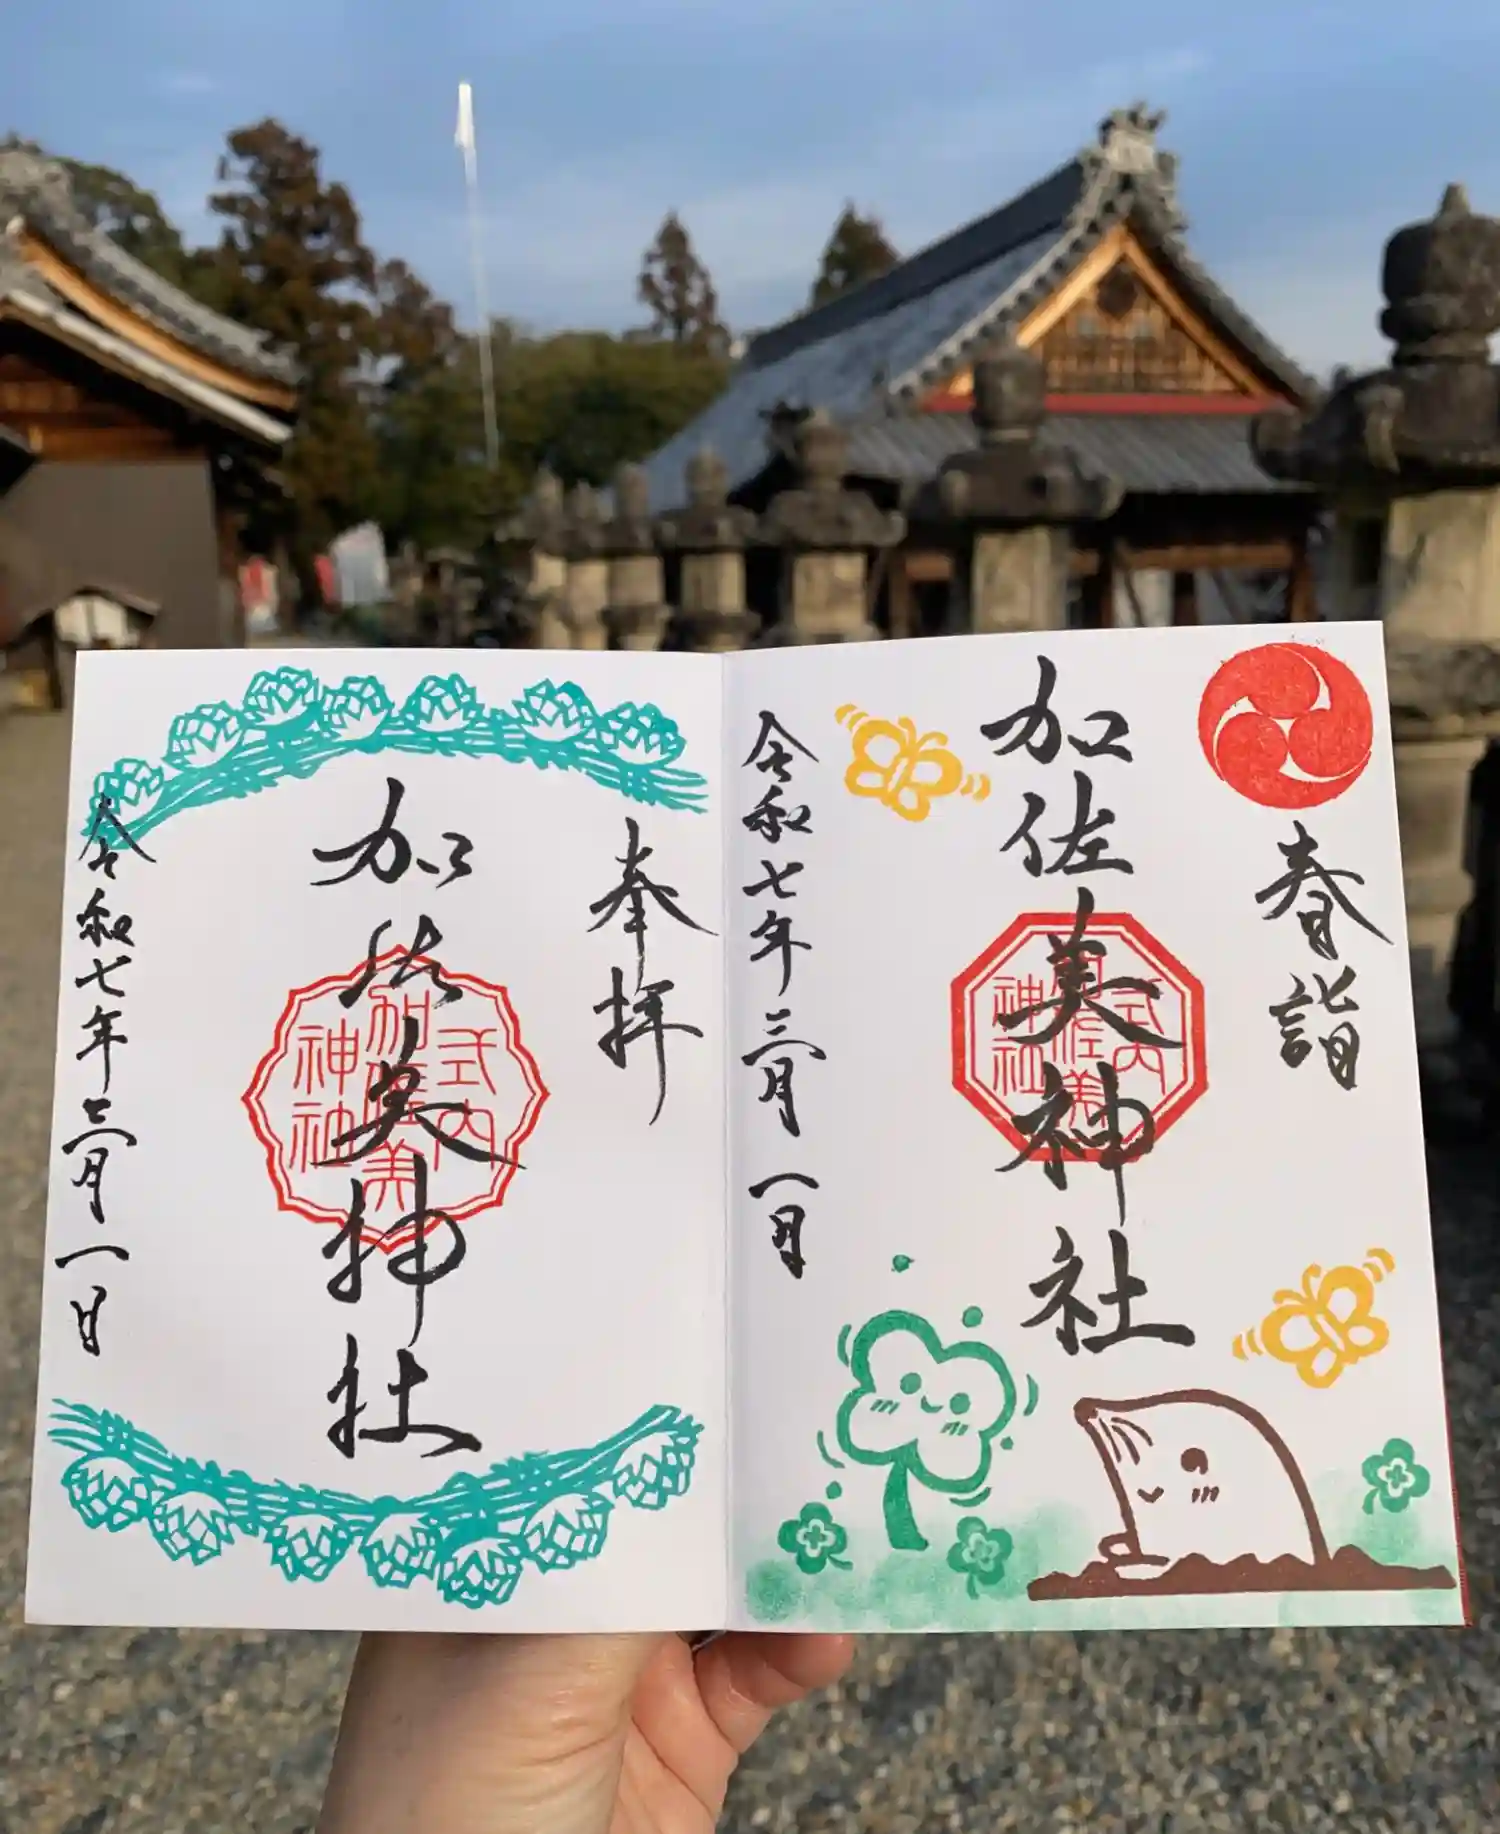 春詣
加佐美神社
式内
加佐美
神社
令和七年三月一日
奉拝
加佐美神社
式内
加佐美
神社
令和七年三月一日